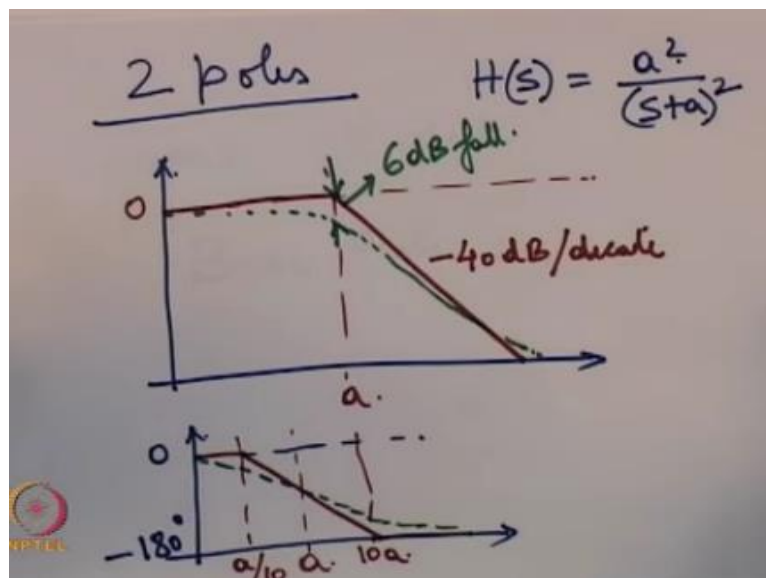 2 poles
H(s) = a²/(s+a)²
0
6dB fall.
-40 dB/decade
a.
0
-180°
a/10
a.
10a.
NPTEL